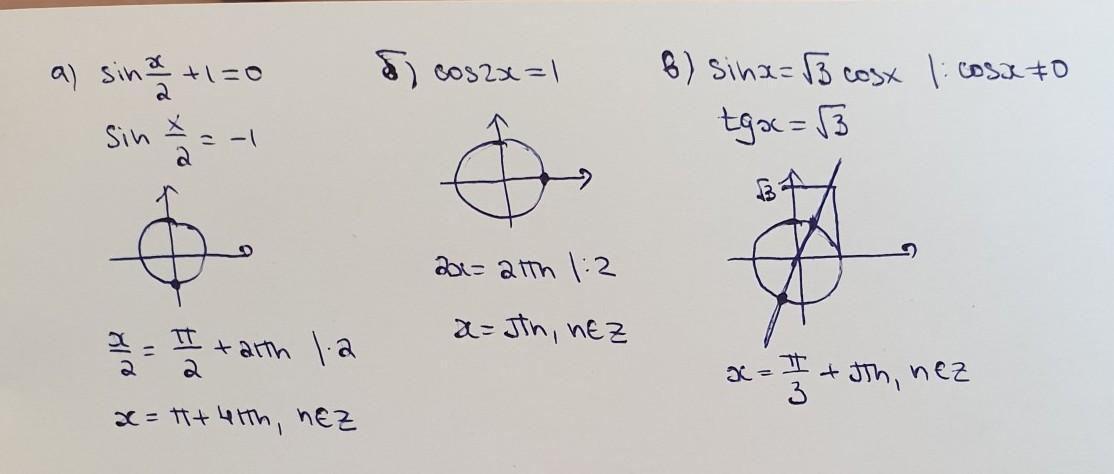 а) sin x/2 + 1 = 0
sin x/2 = -1
x/2 = π/2 + 2πn |·2
x = π + 4πn, n∈Z
б) cos2x = 1
2x = 2πn |:2
x = πn, n∈Z
в) sinx = √3 cosx |: cosx ≠ 0
tgx = √3
√3
x = π/3 + πn, n∈Z